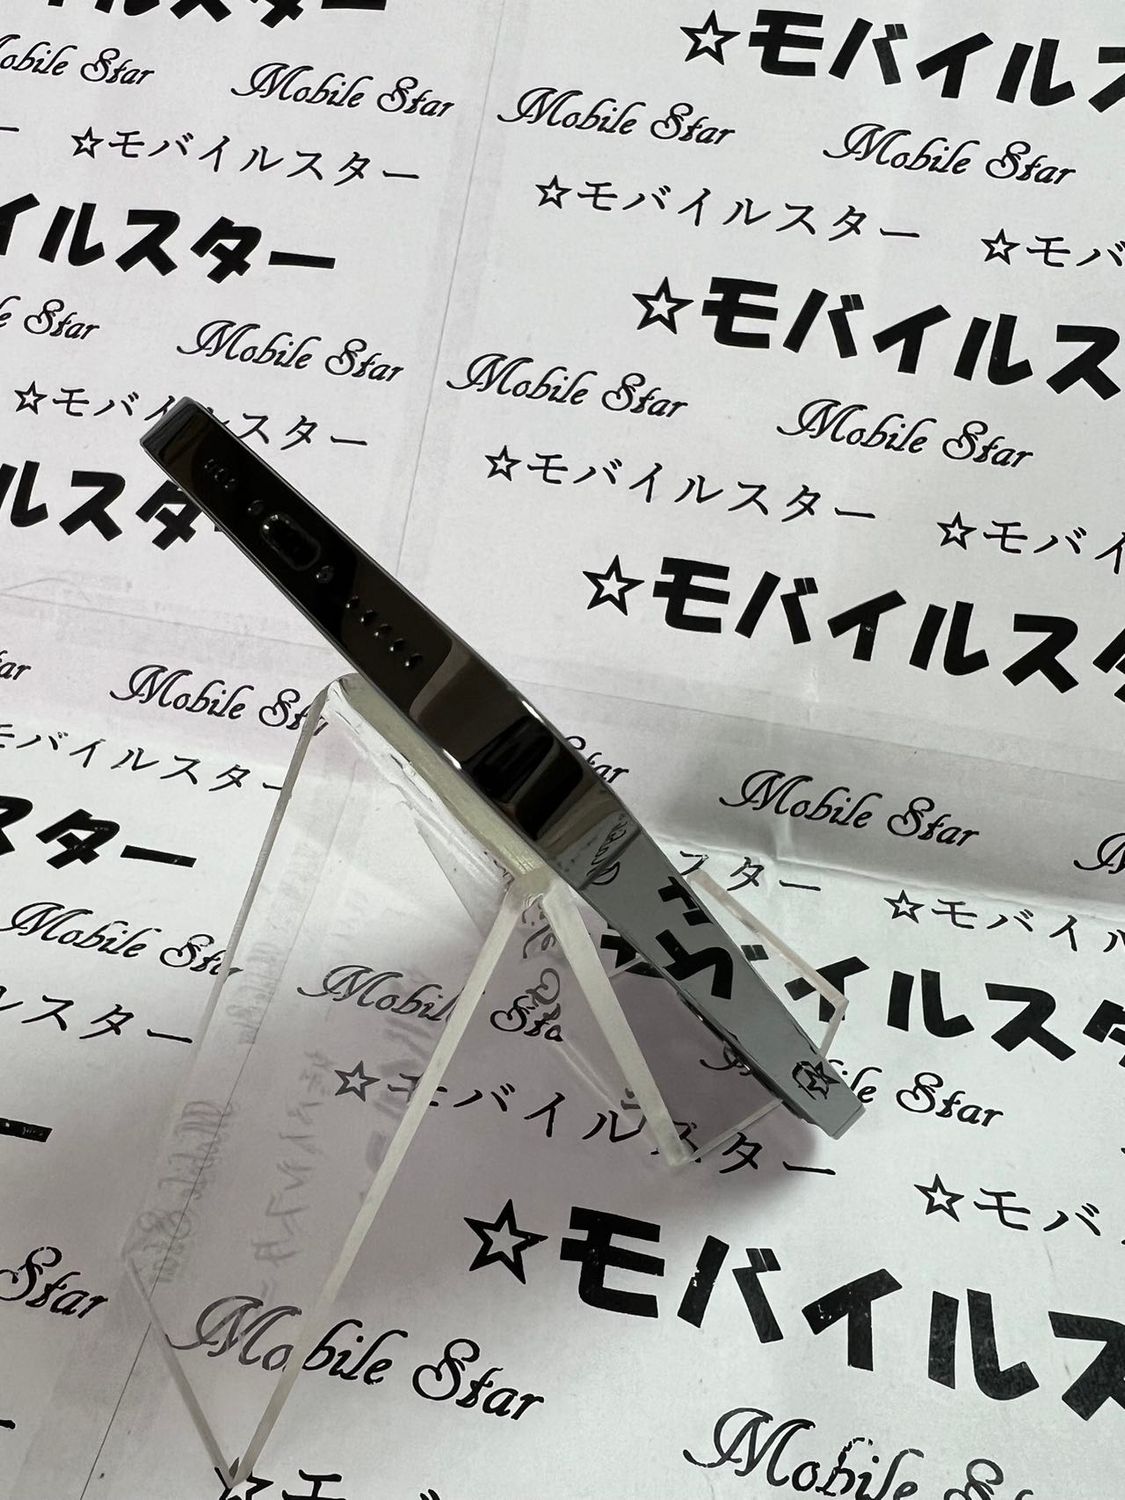 Mobile Star Mobile Star Mobile Star
☆モバイルス
☆モバイルスター ☆モバイルスター ☆モバ
Mobile Star
イルスター
Star Mobile Star Mobile Star Mobile Star
☆モバイルス
☆モバイルスター ☆モバイルスター ☆モバイ
ルスター
☆モバイルスタ
Mobile Star Mobile Star
モバイルスター スター ☆モバイル
スター
Mobile Star Mobile Star
バイルスタ
ルスター ☆モバイルスター ☆モバ
Mobile Star
Star Mobile Star
☆モバイルス
Mobile Star
☆モバ